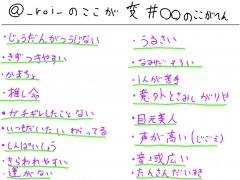 @_roi_のここが変 #○○のここがへん
・じょうだんがつうじない
・きずつきやすい
・かまちょ
・推し命
・ガチギレしたことない
・いっせだいたいわかってる
・しんぱいしょう
・きらわれやすい
・運がない
・うるさい
・なみだもろい
・人が苦手
・意外とさみしがりや
・目元美人
・声が高い(じごえ)
・音域広い
・たんさんだいすき